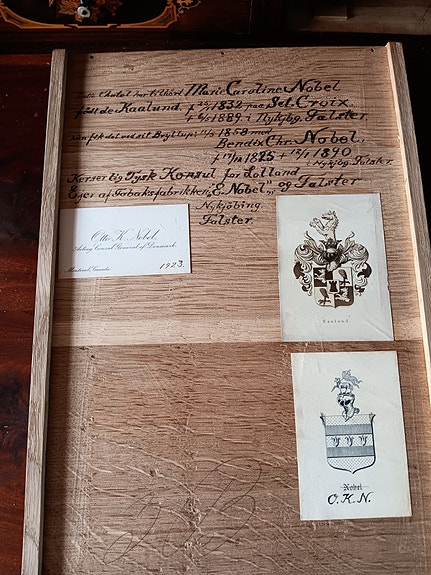 Dette Chatol har tilhört Marie Caroline Nobel
född de Kaalund, f 25/1 1832 paa Sct. Croix
+ 6/5 1889 i Nykjbg. Falster,
hun fik det ved sit Bryllup 1858 med
Bendix Chr. Nobel,
1825 + 1890
i Nykjbg. Falster.
Keiserlig Tysk Konsul for Lolland
Ejer af Tobaksfabrikken "E. Nobel" og Falster
Nykjöbing
Falster
Otto K. Nobel
Acting Consul General of Denmark.
Montreal, Canada
1923.
Kaalund
Nobel
O.K.N.